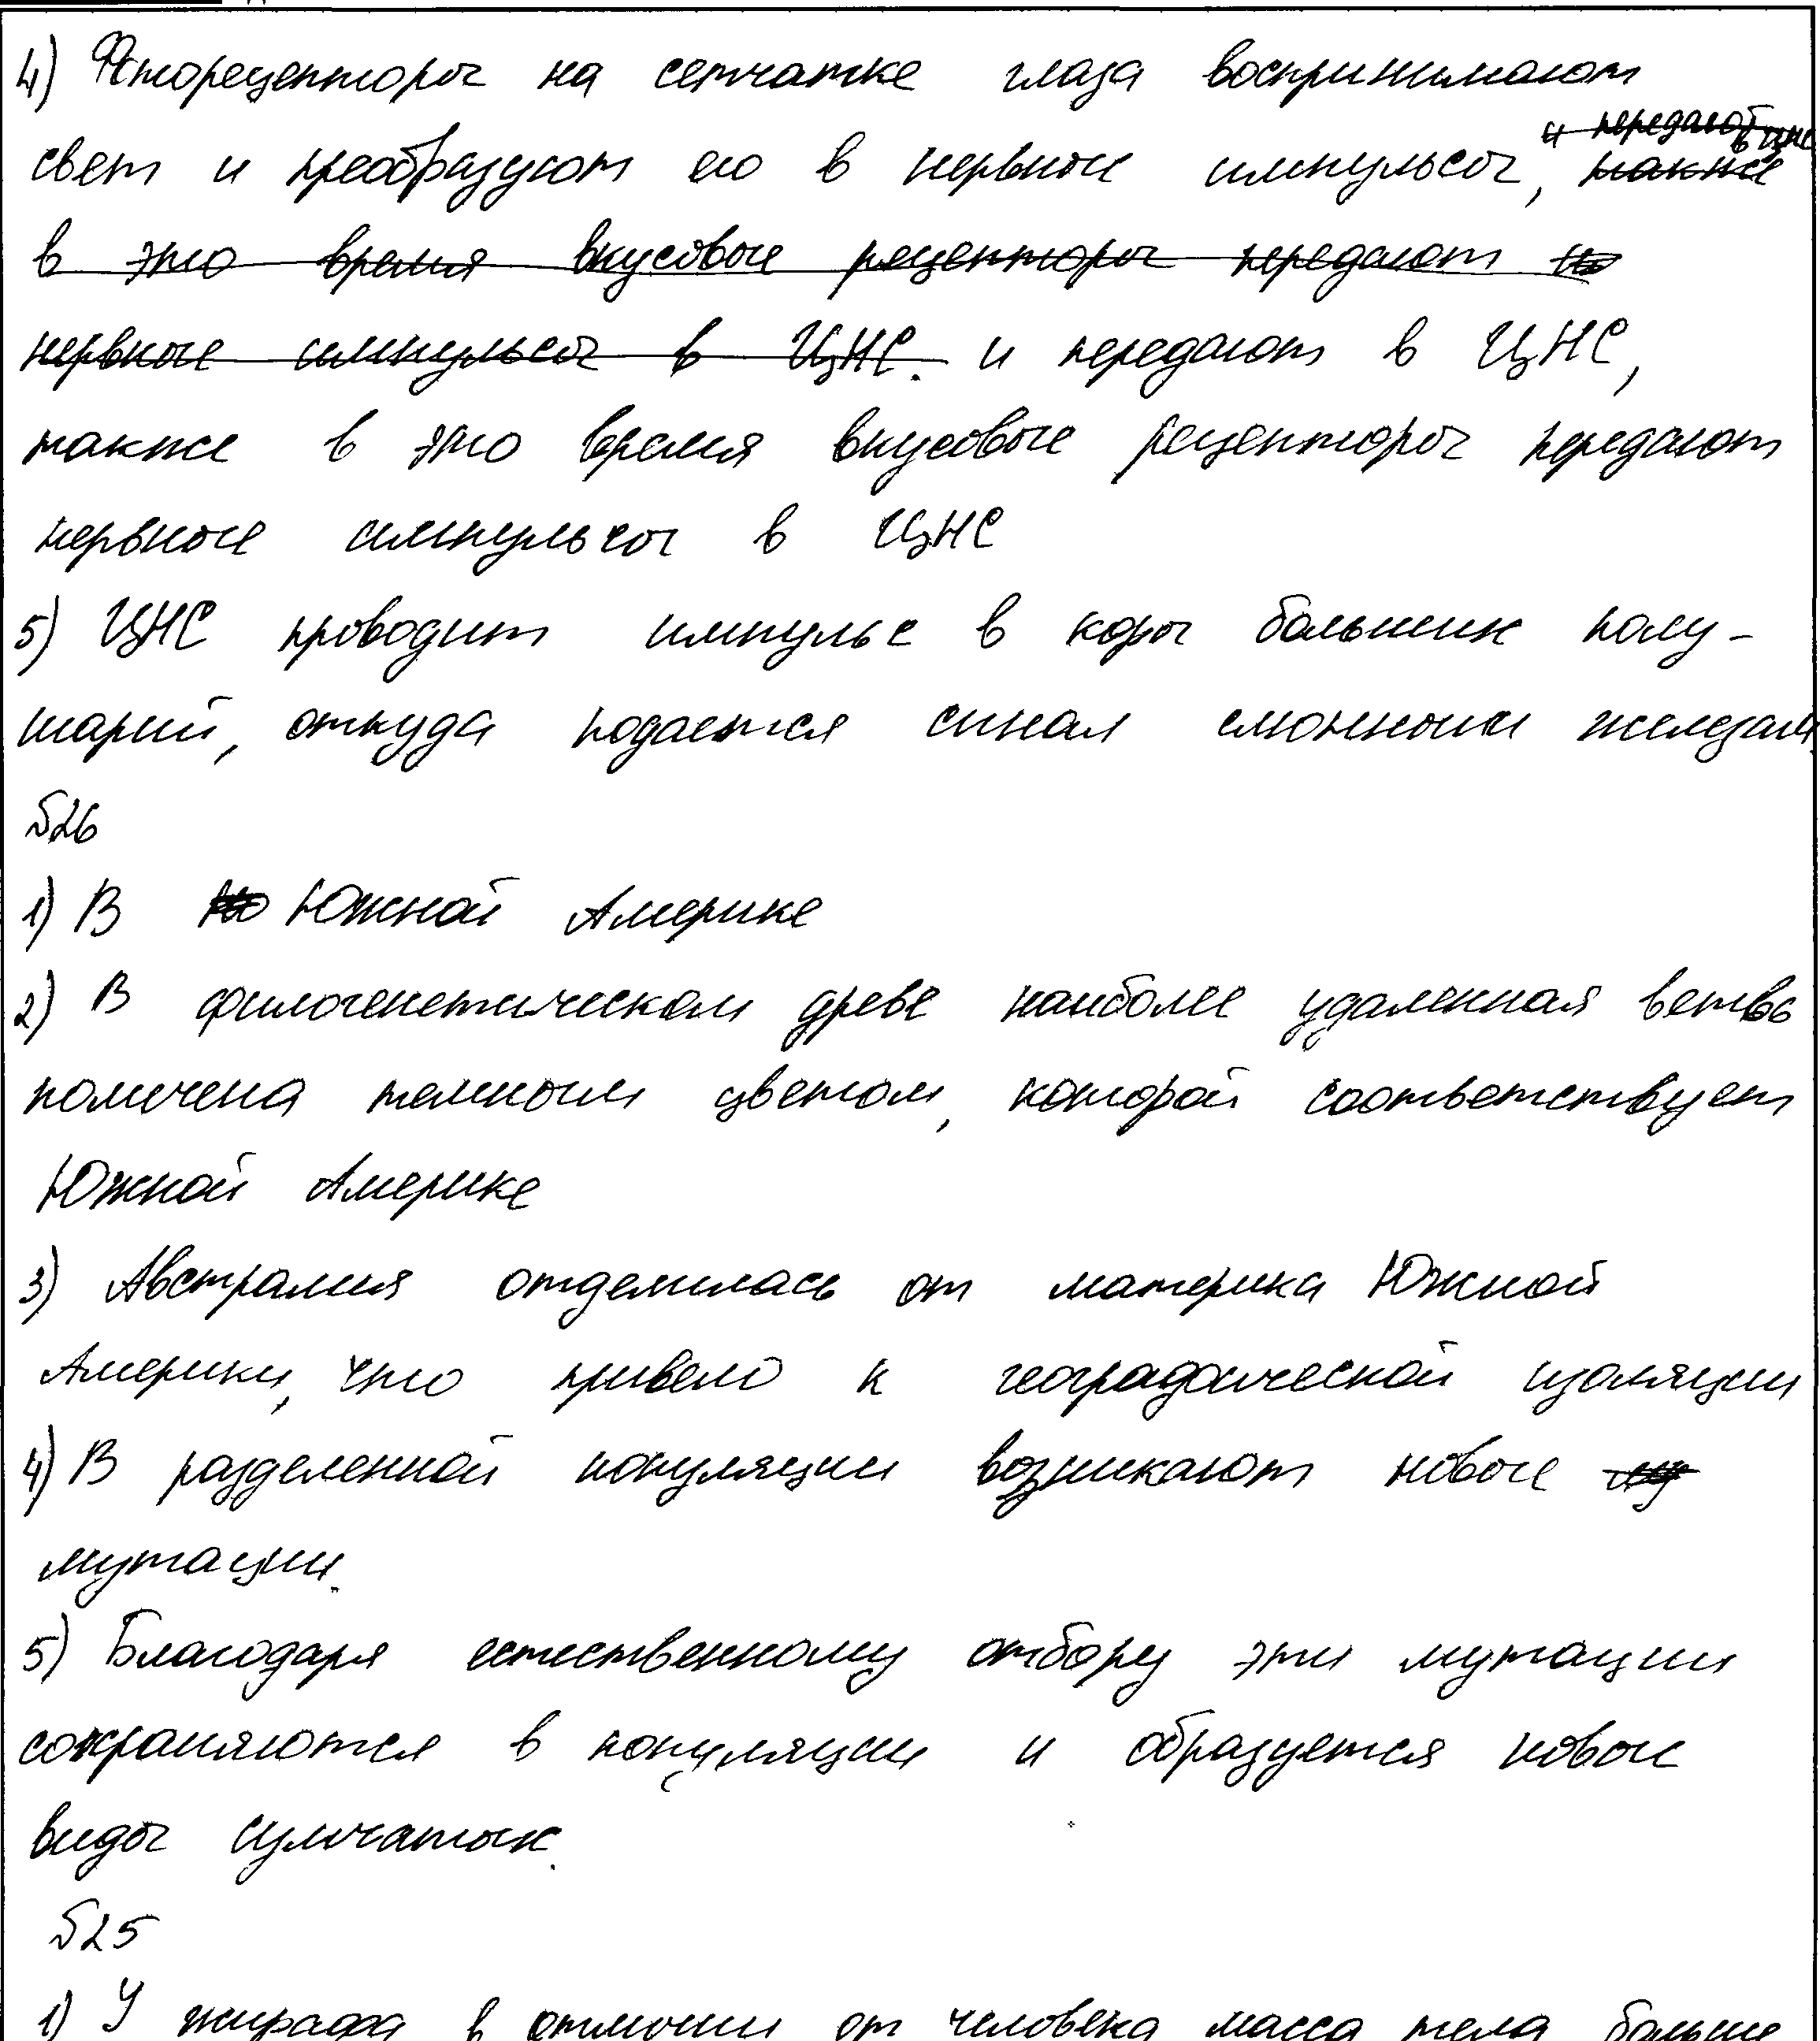 4) Фоторецепторы на сетчатке глаза воспринимают
и передают в ЦНС
свет и преобразуют его в нервные импульсы, также
в это время вкусовые рецепторы передают
нервные импульсы в ЦНС. и передают в ЦНС,
также в это время вкусовые рецепторы передают
нервные импульсы в ЦНС
5) ЦНС проводит импульс в коры больших полу-
шарий, откуда подается сигнал слюнным железам
№26
1) В Южной Америке
2) В филогенетическом древе наиболее удаленная ветвь
помечена темным цветом, которой соответствует
Южной Америке
3) Австралия отделилась от материка Южной
Америки, что привело к географической изоляции
4) В разделенной популяции возникают новые
мутации.
5) Благодаря естественному отбору эти мутации
сохраняются в популяции и образуется новые
виды сумчатых.
№25
1) У жирафа в отличии от человека масса тела больше